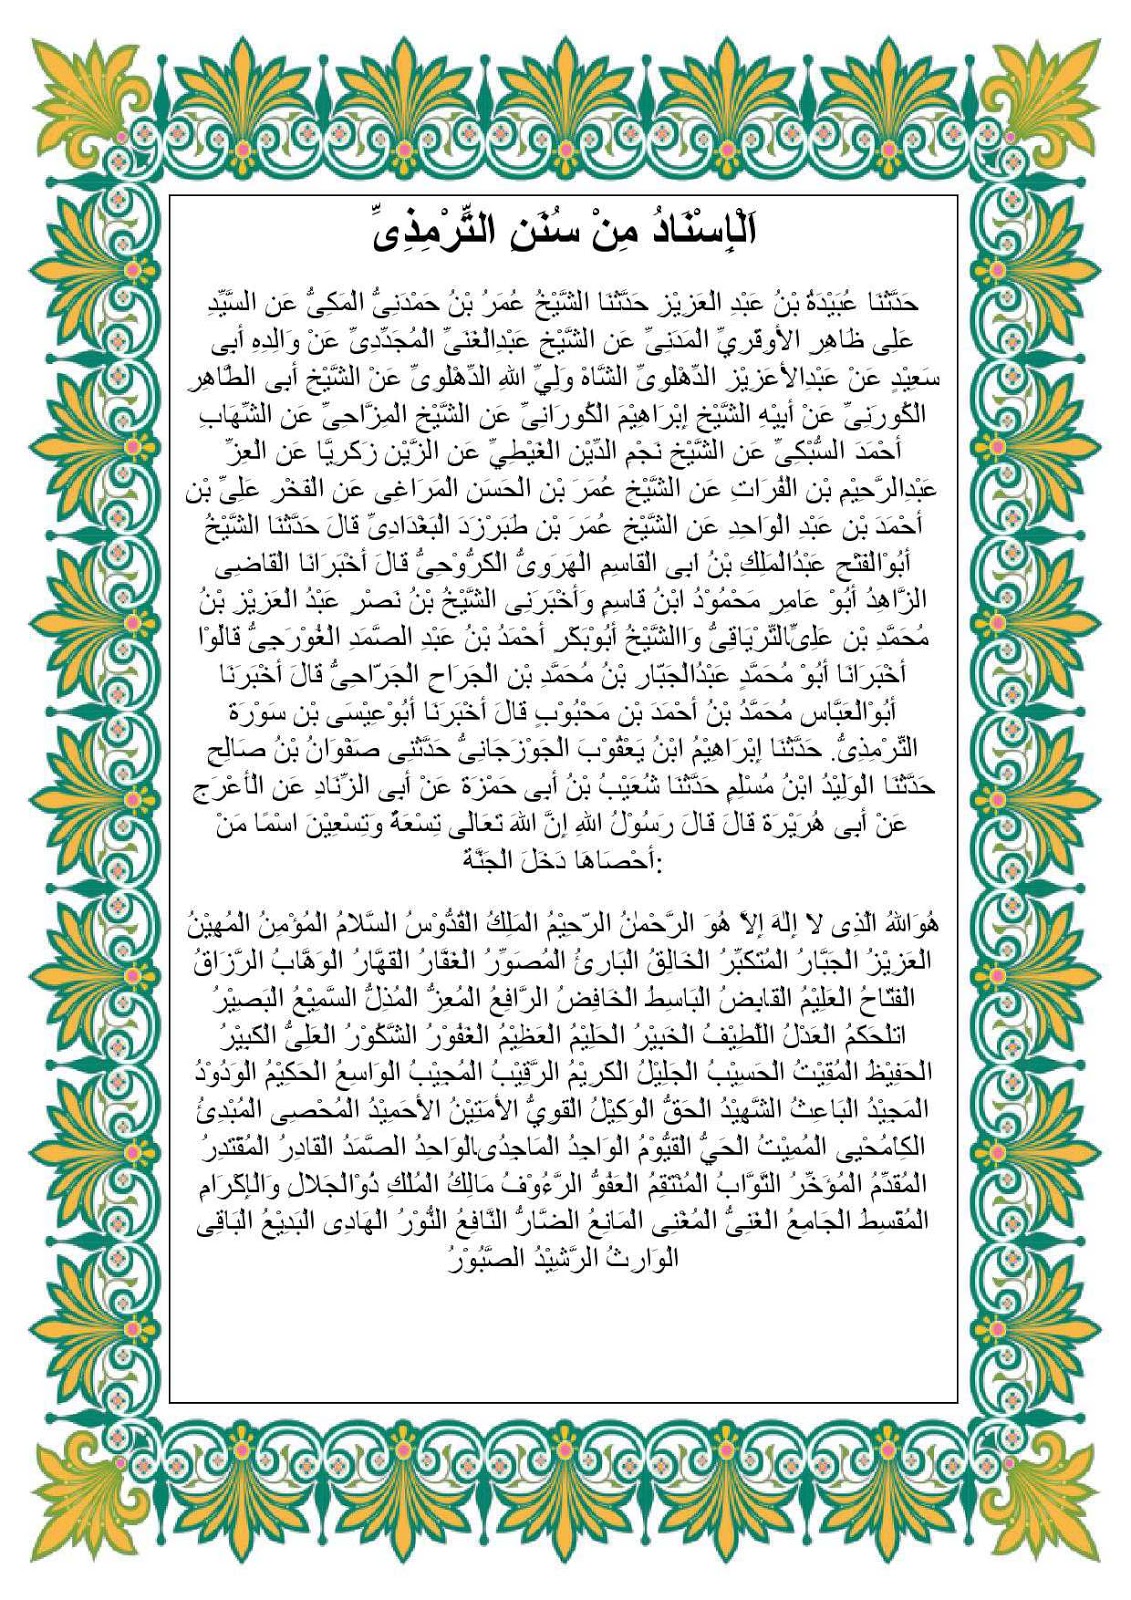 اَلْإِسْنَادُ مِنْ سُنَنِ التِّرْمِذِىِّ
حَدَّثَنَا عُبَيْدَةُ بْنُ عَبْدِ الْعَزِيْزِ حَدَّثَنَا الشَّيْخُ عُمَرُ بْنُ حَمْدَنِىُّ الْمَكِىُّ عَنِ السَّيِّدِ
عَلِى ظَاهِرِ الأوِقْرِيِّ الْمَدَنِىِّ عَنِ الشَّيْخِ عَبْدِالْغَنَىِّ الْمُجَدِّدِىِّ عَنْ وَالِدِهِ أبى
سَعِيْدٍ عَنْ عَبْدِالأعَزِيْزِ الدِّهْلَوِىِّ الشَّاهْ وَلِيِّ اللهِ الدِّهْلَوِىِّ عَنْ الشَّيْخِ أبى الطَّاهِرِ
الْكُورَنِىِّ عَنْ أبيْهِ الشَّيْخِ إبْرَاهِيْمَ الْكُورَانِىِّ عَنِ الشَّيْخِ الْمِزَّاحِىِّ عَنِ الشِّهَابِ
أحْمَدَ السُّبْكِىِّ عَنِ الشَّيْخِ نَجْمِ الدِّيْنِ الْغَيْطِيِّ عَنِ الزَّيْنِ زَكَرِيَّا عَنِ الْعِزِّ
عَبْدِالرَّحِيْمِ بْنِ الْفُرَاتِ عَنِ الشَّيْخِ عُمَرَ بْنِ الْحَسَنِ الْمَرَاغِى عَنِ الْفَخْرِ عَلِىِّ بْنِ
أحْمَدَ بْنِ عَبْدِ الْوَاحِدِ عَنِ الشَّيْخِ عُمَرَ بْنِ طَبَرْزَدَ الْبَغْدَادِىِّ قَالَ حَدَّثَنَا الشَّيْخُ
أبُوْالْفَتْحِ عَبْدُالْمَلِكِ بْنُ ابى الْقَاسِمِ الْهَرَوِىُّ الْكَرُّوْحِىُّ قَالَ أخْبَرَانَا الْقَاضِى
الزَّاهِدُ أبُوْ عَامِرٍ مَحْمُوْدُ ابْنُ قَاسِمٍ وَأخْبَرَنِى الشَّيْخُ بْنُ نَصْرٍ عَبْدُ الْعَزِيْزِ بْنُ
مُحَمَّدِ بْنِ عَلِىِّالتِّرْيَاقِىُّ وَاالشَّيْخُ أبُوْبَكْرٍ أحْمَدُ بْنُ عَبْدِ الصَّمَدِ الْغُوْرَجِىُّ قَالُوْا
أخْبَرَانَا أبُوْ مُحَمَّدٍ عَبْدُالْجَبَّارِ بْنُ مُحَمَّدِ بْنِ الْجَرَاحِ الْجَرّاحِىُّ قَالَ أخْبَرَنَا
أبُوْالْعَبَّاسِ مُحَمَّدُ بْنُ أحْمَدَ بْنِ مَحْبُوْبٍ قَالَ أخْبَرَنَا أبُوْعِيْسَى بْنِ سَوْرَةَ
التِّرْمِذِىُّ. حَدَّثَنَا إبْرَاهِيْمُ ابْنُ يَعْقُوْبَ الْجَوْزَجَانِىُّ حَدَّثَنِى صَفْوَانُ بْنُ صَالِحٍ
حَدَّثَنَا الْوَلِيْدُ ابْنُ مُسْلِمٍ حَدَّثَنَا شُعَيْبُ بْنُ أبى حَمْزَةَ عَنْ أبى الزِّنَادِ عَنِ الْأعْرَجِ
عَنْ أبى هُرَيْرَةَ قَالَ قَالَ رَسُوْلُ اللهِ إنَّ اللهَ تَعَالَى تِسْعَةً وَتِسْعِيْنَ اسْمًا مَنْ
أحْصَاهَا دَخَلَ الْجَنَّةَ:
هُوَاللهُ الَّذِى لا إلَهَ إلاَّ هُوَ الرَّحْمٰنُ الرّحِيْمُ الْمَلِكُ الْقُدُّوْسُ السَّلامُ الْمُؤْمِنُ الْمُهيْنُ
الْعَزِيْزُ الْجَبَّارُ الْمُتَكَبِّرُ الْخَالِقُ الْبَارِئُ الْمُصَوِّرُ الْغَفَّارُ الْقَهَّارُ الْوَهَّابُ الرَّزَاقُ
الْفَتّاحُ الْعَلِيْمُ الْقَابِضُ الْبَاسِطُ الْخَافِضُ الرَّافِعُ الْمُعِزُّ الْمُذِلُّ السَّمِيْعُ الْبَصِيْرُ
اتلْحَكَمُ الْعَدْلُ اللَّطِيْفُ الْخَبِيْرُ الْحَلِيْمُ الْعَظِيْمُ الْغَفُوْرُ الشَّكُوْرُ الْعَلِىُّ الْكَبِيْرُ
الْحَفِيْظُ الْمُقِيْتُ الْحَسِيْبُ الْجَلِيْلُ الْكَرِيْمُ الرَّقِيْبُ الْمُجِيْبُ الْوَاسِعُ الْحَكِيْمُ الْوَدُوْدُ
الْمَجِيْدُ الْبَاعِثُ الشَّهِيْدُ الْحَقُّ الْوَكِيْلُ الْقَوِيُّ الأمَتِيْنُ الأحَمِيْدُ الْمُحْصِى الْمُبْدِئُ
الْكِامُحْيِى الْمُمِيْتُ الْحَيُّ الْقَيُّوْمُ الْوَاجِدُ الْمَاجِدُىالْوَاحِدُ الصَّمَدُ الْقَادِرُ الْمُقْتَدِرُ
الْمُقَدِّمُ الْمُؤَخِّرُ التَّوَّابُ الْمُنْتَقِمُ الْعَفُوُّ الرَّءُوْفُ مَالِكُ الْمُلْكِ ذُوْالْجَلالِ وَالْإكْرَامِ
الْمُقْسِطُ الْجَامِعُ الْغَنِىُّ الْمُغْنِى الْمَانِعُ الضَّارُّ النَّافِعُ النُّوْرُ الْهَادِى الْبَدِيْعُ الْبَاقِى
الْوَارِثُ الرَّشِيْدُ الصَّبُوْرُ